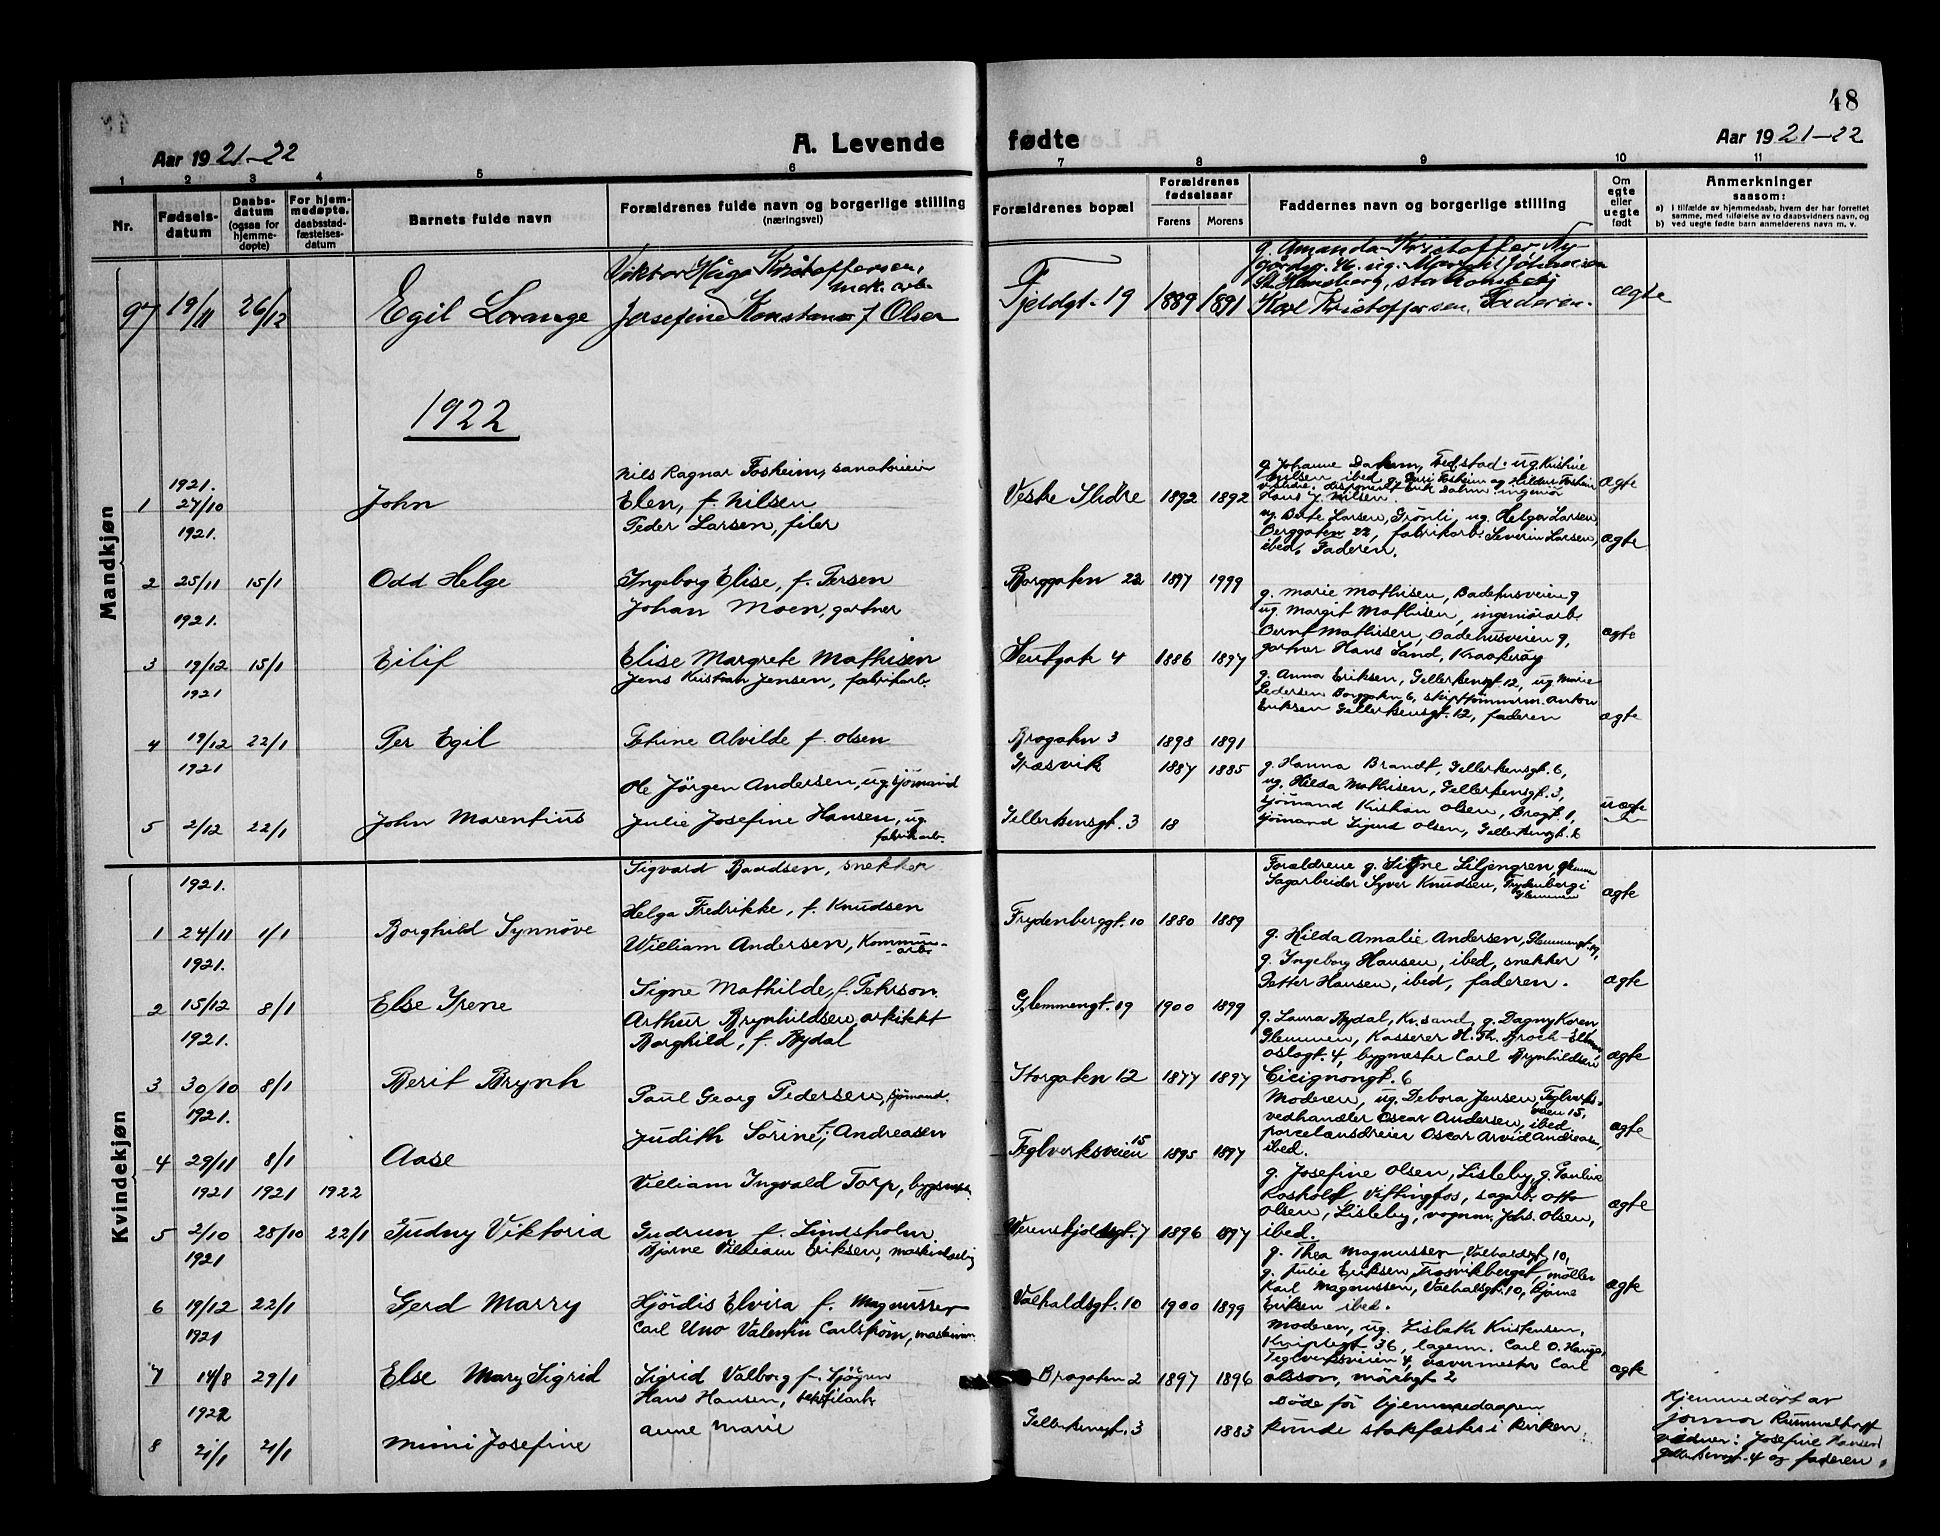 48
A. Levende fødte
Aar 1921-22
Aar 1921-22
1 2 3 4 5 6 7 8 9 10 11
Nr.
Fødsels-
datum
Daabs-
datum
(ogsaa for
hjemme-
døpte)
For hjem-
medøpte.
daabsstad-
fæstelses-
datum
Barnets fulde navn
Forældrenes fulde navn og borgerlige stilling
(næringsvei)
Forældrenes bopæl
Forældrenes
fødselsaar
Farens Morens
Faddernes navn og borgerlige stilling
Om
egte
eller
uegte
født
Anmerkninger
saasom:
a) I tilfælde av hjemmedaab, hvem der har forrettet
samme, med tilføielse av to daabsvidners navn, og
b) ved uegte fødte barn anmelderens navn m. v.
Mandkjøn
97 19/11 26/12 Egil Lorange
Viktor Hugo Kristoffersen,
mek. arb.
Josefine Konstanse f Olsen
Fjeldgt. 19 1889 1891
g. Amanda Kristoffer Ny-
Karl Kristoffersen. Faderen.
ægte
1922
1 1921. 27/10 John
Nils Ragnar Fosheim, sanatorieeier
Elen, f. Nilsen
Vestre Slidre 1892 1892
Hans J. Nilsen.
ægte
2 1921. 25/11 15/1 Odd Helge
Peder Larsen, filer
Ingeborg Elise, f. Persen
Borggaten 22 1897 1999
ug. Berte Larsen, Grønli, ug. Helger Larsen
Berggaten 22, fabrikarb. Severin Larsen,
ibed, Faderen.
ægte
3 1921. 19/12 15/1 Eilif
Johan Moen, gartner
Elise Margrete Mathisen
4 1886 1897
g. Marie Mathisen, Badehusveien 9
ug. Margit Mathisen, ingeniørarb.
Bernt Mathisen, Badehusveien 9,
gartner Hans Sand, Kraakerøy
ægte
4 1921 19/12 22/1 Per Egil
Jens Kristian Jensen, fabrikarb.
Petrine Alvilde f. Olsen
Brogaten 3 1898 1891
g. Anna Eriksen, Gellertsensgt. 12, ug Marie
Pedersen Borggaten 6, skipstømmerm. Anton
Eriksen Gellertsensgt. 12, faderen
ægte
5 1921 2/12 22/1 John Marentius
Ole Jörgen Andersen, ug. sjömand
Julie Josefine Hansen, ug.
fabrikarb.
Græsvik 1887 1885
Gellertsensgt. 3 18
g. Hanna Brandt, Gellertsensgt. 6,
ug. Hilda Mathisen, Gellertsensgt. 3,
sjömand Kristian Olsen, Brogt. 1,
sjömand Sigurd Olsen, Gellertsensgt. 6
uægte
Kvindekjøn
1 1921. 24/11 1/1 Borghild Synnöve
Sigvard Baardsen, snekker
Helga Fredrikke, f. Knudsen
Frydenberggt. 10 1880 1889
Forældrene g. Signe Liljengren Glemmen
Sagarbeider Syver Knudsen, Frydenberg i
Glemmen
ægte
2 1921. 15/12 8/1 Else Irene
William Andersen, Kommune-
arb.
Signe Mathilde, f. Pehrson
Glemmengt. 19 1900 1899
g. Hilda Amalie Andersen, Glemmengt. 19,
g. Ingeborg Hansen, ibed, snekker
Petter Hansen, ibed, faderen.
ægte
3 1921. 30/10 8/1 Berit Brynh
Arthur Brynhildsen, arkitekt
Borghild, f. Rydal
Storgaten 12 1877 1897
g. Laura Rydal, Kr.sand, g. Dagny Koren
Glemmen, Kasserer H. Th. Broch
Oslogt. 4, bygmester Carl Brynhildsen
Cicignongt. 6
ægte
4 1921. 29/11 8/1 Aase
Paul Georg Pedersen, sjömand.
Judith Sörine f. Andreasen
Teglverksveien 15 1895 1897
Moderen, ug. Debora Jensen, Teglverks-
veien 15,
vedhandler Oscar Andersen, ibed.
porcelænsdreier Oscar Arvid Andreasen,
ibed.
ægte
5 1921 2/10 1921 28/10 1922 22/1 Gudny Viktoria
Villiam Ingvald Torp, bygsnek.
Gudrun f. Lindsholm
Werenskjoldsgt. 7 1896 1897
g. Josefine Olsen, Lisleby, g. Pauline
Roshold, Vittingfos, sagarb. Otto
Olsen, Lisleby, vognm. Johs. Olsen,
ibed.
ægte
6 1921 19/12 22/1 Gerd Marry
Bjarne William Eriksen, maskinarb.
Hjördis Elvira f. Magnussen
Valhaldsgt. 10 1900 1899
g. Thea Magnussen, Valhaldsgt. 10,
g. Julie Eriksen, Trosvikberget, möller
Karl Magnussen, Valhaldsgt. 10, Bjarne
Eriksen ibed.
ægte
7 1921 14/8 29/1 Else Mary Sigrid
Carl Uno Valentin Carlström, maskinm.
Sigrid Valborg f. Sjögren
Brogaten 2 1897 1896
Moderen, ug. Lisbeth Kristensen,
36, lagerm. Carl O. Hauge,
Teglverksveien 4, vævermester Carl
Olsson, 2
ægte
8 1922 2/1 2/1 Mimi Josefine
Hans Hansen, tekstilarb.
Anne Marie
Gellertsensgt. 3 1883
Döde för hjemmedaapen
kunde stadfæstes i kirken.
Hjemmedöpt av
jormor Rummelhoff
vidner: Josefine Hansen
Gellertsensgt. 4 og faderen